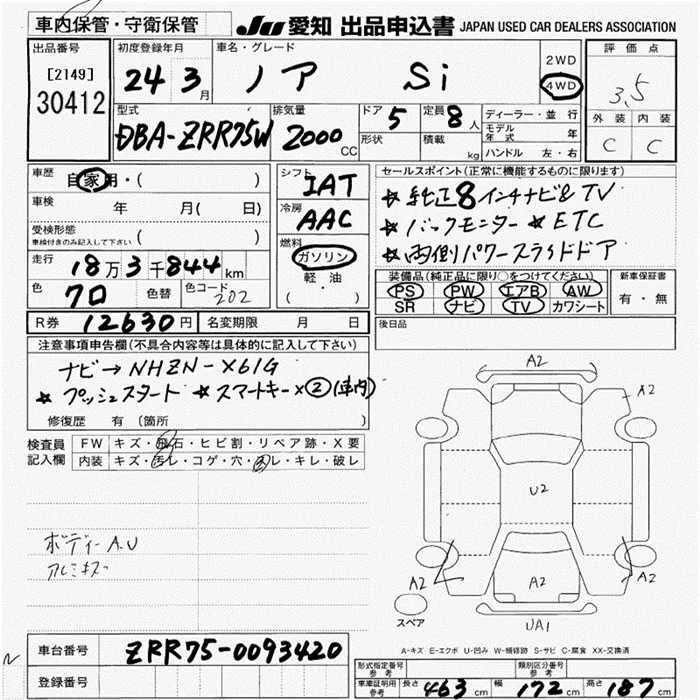 車内保管・守衛保管
JU 愛知 出品申込書 JAPAN USED CAR DEALERS ASSOCIATION
出品番号
[2149]
30412
初度登録年月
24 3月
車名・グレード
ノア Si
2WD
4WD
評価点
3.5
外装 内装
C C
型式
DBA-ZRR75W
排気量
2000 CC
ドア
5
定員
8人
形状
積載
kg
ディーラー・並行
モデル年式 年
ハンドル 左・右
車歴
自家用・( )
車検
年 月( 日)
受検形態
車検付きのみ記入して下さい ( )
走行
18万3千844km
色
クロ
色替
色コード
202
シフト
IAT
冷房
AAC
燃料
ガソリン
軽油
( ・ )
セールスポイント(正常に機能するものに限ります)
★純正8インチナビ& TV
★バックモニター ★ETC
★両側パワースライドドア
装備品(純正品に限り○をつけてください)
PS PW エアB AW
SR ナビ TV カワシート
新車保証書
有・無
R券 12630円 名変期限 月 日
後日品
注意事項申告欄(不具合内容等は具体的に記入して下さい)
ナビ→NHZN-X61G
★プッシュスタート ★スマートキー×②(車内)
修復歴 有 (箇所 )
検査員
記入欄
FW キズ・飛石・ヒビ割・リペア跡・X要
内装 キズ・汚レ・コゲ・穴・スレ・キレ・破レ
ボディーA.U
アルミキズ
A2
A2
U2
A2
A2
A2
UA1
スペア
A-キズ E-エクボ U-凹み W-補修跡 S-サビ C-腐食 XX-交換済
車台番号
ZRR75-0093420
登録番号
形式指定番号
参考
類別区分番号
参考
車庫証明用
参考
長さ 463cm 幅 172cm 高さ 187cm